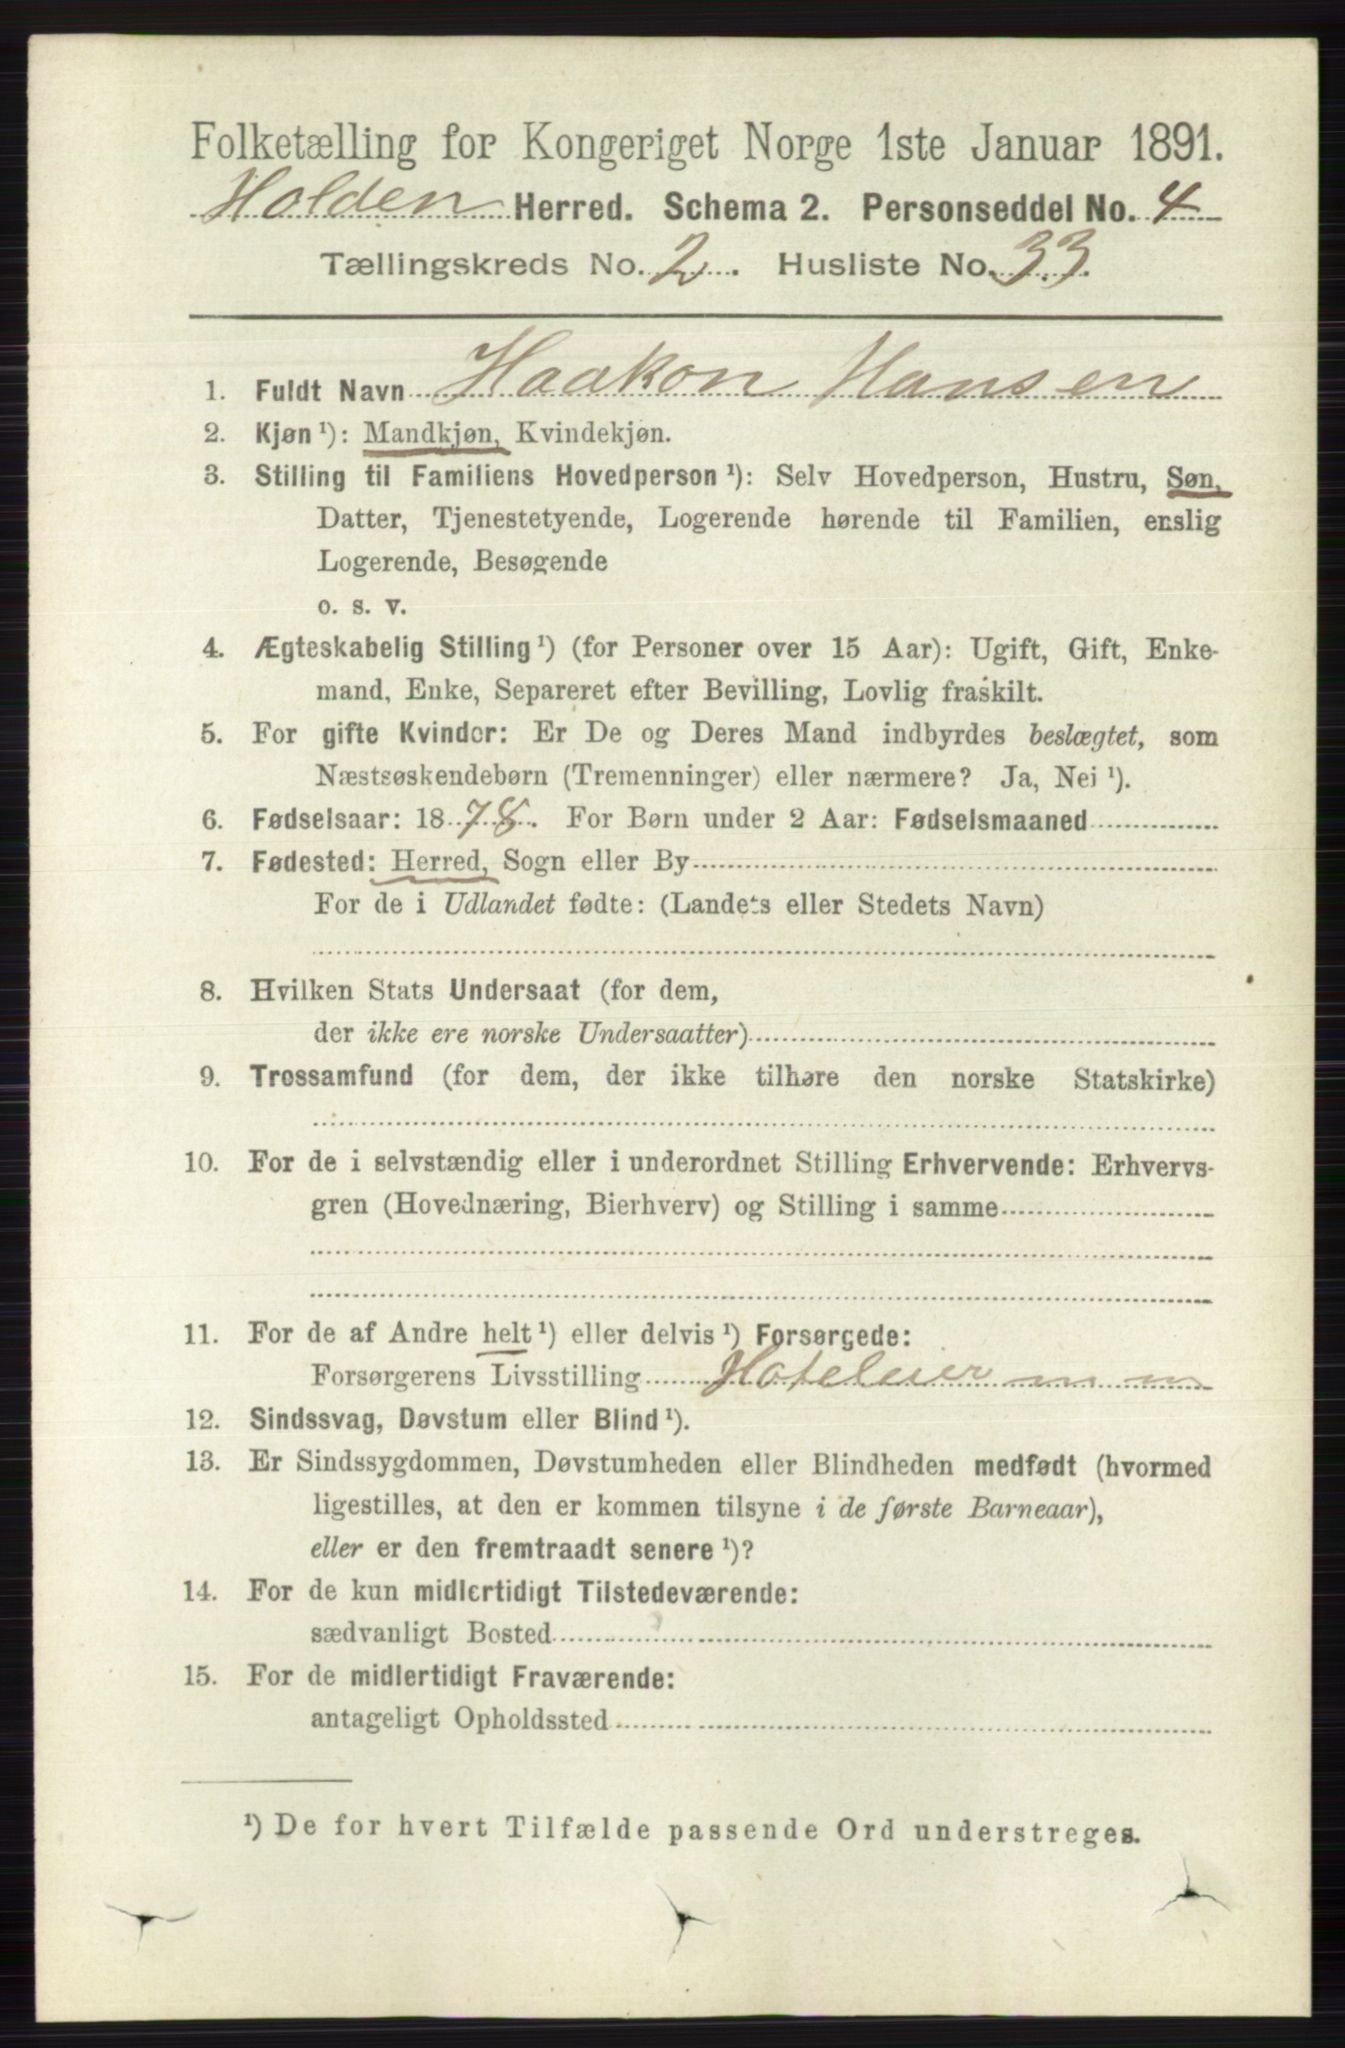 Folketælling for Kongeriget Norge 1ste Januar 1891.
Holden Herred. Schema 2. Personseddel No. 4
Tællingskreds No. 2. Husliste No. 33.
1. Fuldt Navn Haakon Hansen
2. Kjøn ¹): Mandkjøn, Kvindekjøn.
3. Stilling til Familiens Hovedperson ¹): Selv Hovedperson, Hustru, Søn,
Datter, Tjenestetyende, Logerende hørende til Familien, enslig
Logerende, Besøgende
o. s. v.
4. Ægteskabelig Stilling ¹) (for Personer over 15 Aar): Ugift, Gift, Enke-
mand, Enke, Separeret efter Bevilling, Lovlig fraskilt.
5. For gifte Kvinder: Er De og Deres Mand indbyrdes beslægtet, som
Næstsøskendebørn (Tremenninger) eller nærmere? Ja, Nei ¹).
6. Fødselsaar: 1878. For Børn under 2 Aar: Fødselsmaaned
7. Fødested: Herred, Sogn eller By
For de i Udlandet fødte: (Landets eller Stedets Navn)
8. Hvilken Stats Undersaat (for dem,
der ikke ere norske Undersaatter)
9. Trossamfund (for dem, der ikke tilhøre den norske Statskirke)
10. For de i selvstændig eller i underordnet Stilling Erhvervende: Erhvervs-
gren (Hovednæring, Bierhverv) og Stilling i samme
11. For de af Andre helt ¹) eller delvis ¹) Forsørgede:
Forsørgerens Livsstilling Hoteleier m m
12. Sindssvag, Døvstum eller Blind ¹).
13. Er Sindssygdommen, Døvstumheden eller Blindheden medfødt (hvormed
ligestilles, at den er kommen tilsyne i de første Barneaar),
eller er den fremtraadt senere ¹)?
14. For de kun midlertidigt Tilstedeværende:
sædvanligt Bosted
15. For de midlertidigt Fraværende:
antageligt Opholdssted
¹) De for hvert Tilfælde passende Ord understreges.